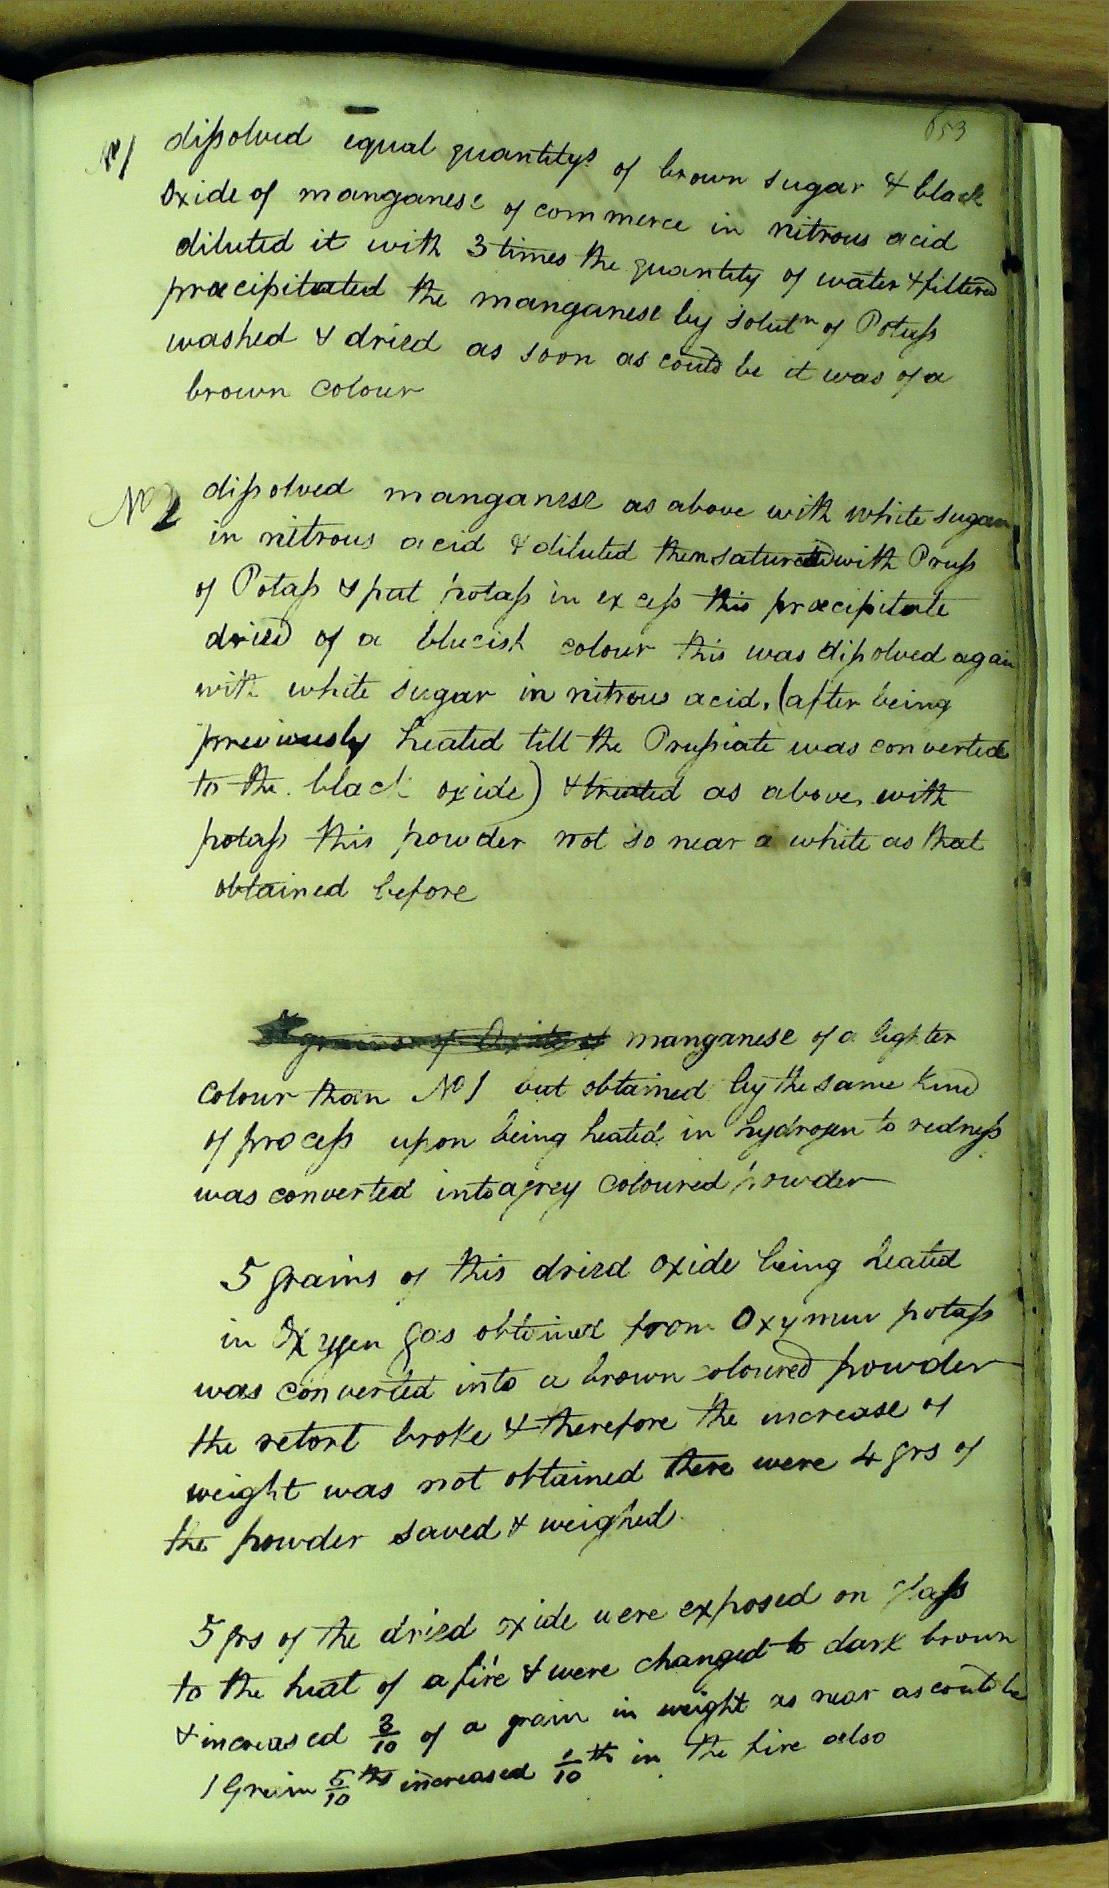 653
No 1 dissolved equal quantitys of brown sugar & black
Oxide of manganese of commerce in nitrous acid
diluted it with 3 times the quantity of water & filtered
præcipitated the manganese by solutn of Potass
washed & dried as soon as could be it was of a
brown colour
No 2 dissolved manganese as above with white sugar
in nitrous acid & diluted then saturated with Pruss
of Potass & put potass in excess this præcipitate
dried of a blueish colour this was dissolved again
with white sugar in nitrous acid, (after being
previously heated till the Prussiate was converted
to the black oxide) & treated as above with
potass this powder not so near a white as that
obtained before
grains of Oxide of manganese of a lighter
colour than No 1 but obtained by the same kind
of process upon being heated in hydrogen to redness
was converted into a grey coloured powder
5 grains of this dried oxide being heated
in Oxygen gas obtained from Oxymur potass
was converted into a brown coloured powder
the retort broke & therefore the increase of
weight was not obtained there were 4 grs of
the powder saved & weighed
5 grs of the dried oxide were exposed on glass
to the heat of a fire & were changed to dark brown
& increased 3/10 of a grain in weight as near as could be
1 Grain 5/10ths increased 1/10th in the fire also